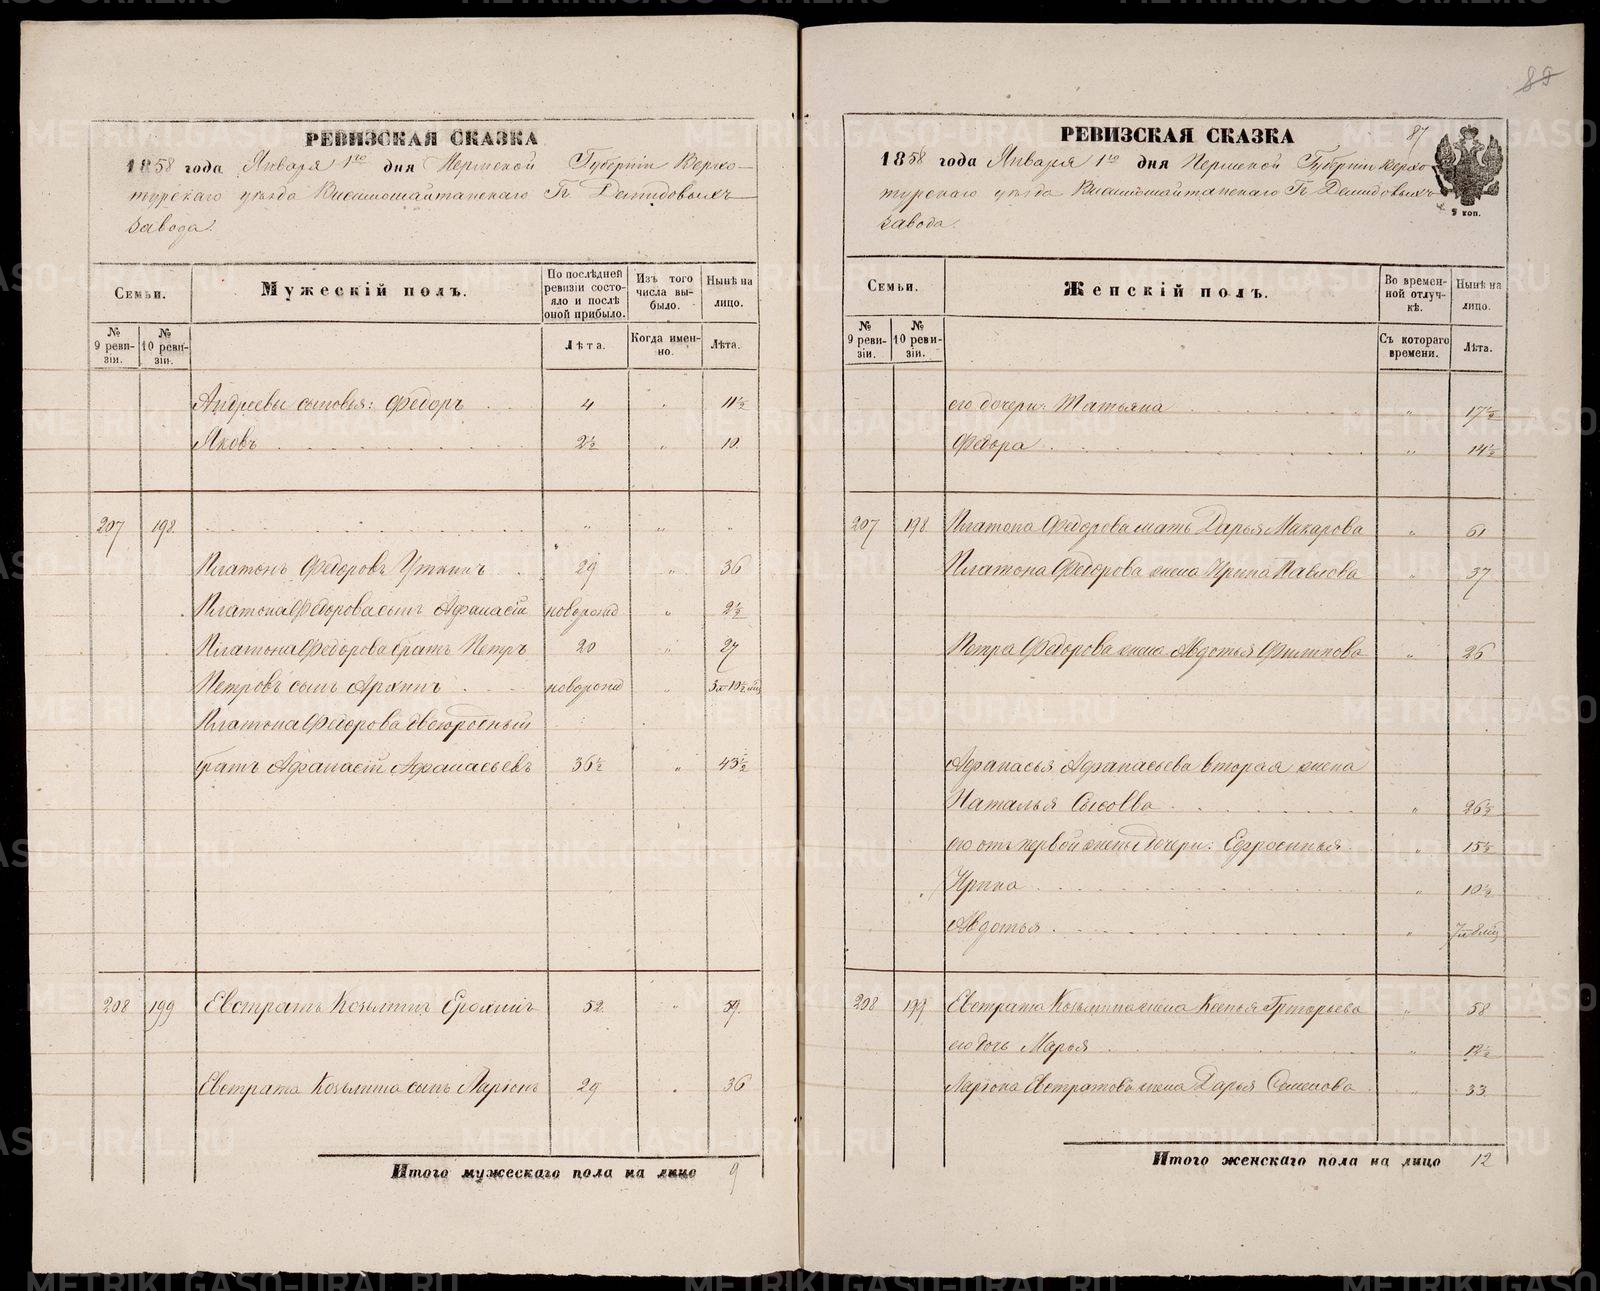 89
РЕВИЗСКАЯ СКАЗКА
1858 года Января 1го дня Пермской Губернiи Верхо-
турскаго уѣзда Висимошайтанскаго Гг. Демидовыхъ
завода.
Семьи.
Мужескiй полъ.
По послѣдней ревизiи состояло и послѣ оной прибыло.
Изъ того числа выбыло.
Нынѣ на лицо.
№ 9 ревизiи.
№ 10 ревизiи.
Лѣта.
Когда именно.
Лѣта.
Андреевы сыновья: Федоръ 4 " 11½
Яковъ 2½ " 10.
207 198. " " "
Платонъ Федоровъ Уткинъ 29 " 36
Платона Федорова сынъ Афанасiй новорожд " 2½
Платона Федорова братъ Петръ 20 " 27
Петровъ сынъ Архипъ новорожд " 3л 10½ мц
Платона Федорова двоюродный
братъ Афанасiй Афанасьевъ 36½ " 43½
208 199 Евстратъ Козьминъ Ерохинъ 52. " 59.
Евстрата Козьмина сынъ Ларiонъ 29 " 36
Итого мужескаго пола на лицо 9
РЕВИЗСКАЯ СКАЗКА 87
1858 года Января 1го дня Пермской Губернiи Верхо
турскаго уѣзда Висимошайтанскаго Гг. Демидовыхъ
завода.
9 коп.
Семьи.
Женскiй полъ.
Во временной отлучкѣ.
Нынѣ на лицо.
№ 9 ревизiи.
№ 10 ревизiи.
Съ котораго времени.
Лѣта.
его дочери: Татьяна " 17½
Федора " 14½
207 198 Платона Федорова мать Дарья Макарова " 61
Платона Федорова жена Ирина Павлова " 37
Петра Федорова жена Авдотья Филипова " 26
Афанасья Афанасьева вторая жена
Наталья Сысоева " 26½
его отъ первой жены дочери: Ефросинья " 15½
Ирина " 10½
Авдотья " 7л 8 мц
208 199 Евстрата Козьмина жена Ксенья Григорьева " 58
его дочь Марья " 12½
Ларiона Евстратова жена Дарья Семенова " 33
Итого женскаго пола на лицо 12
METRIKI.GASO-URAL.RU